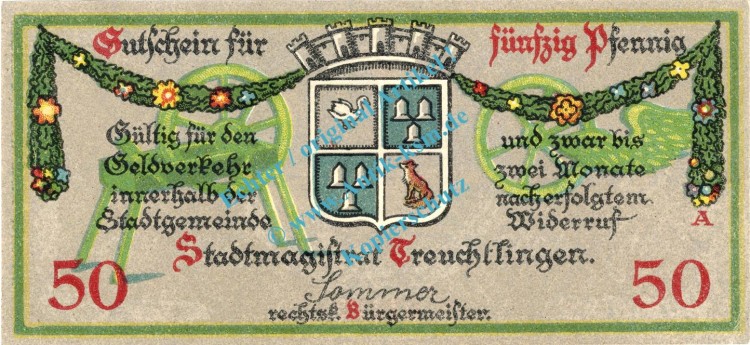 Gutschein für fünfzig Pfennig
Gültig für den
Geldverkehr
innerhalb der
Stadtgemeinde
und zwar bis
zwei Monate
nach erfolgtem
Widerruf
A
Stadtmagistrat Treuchtlingen.
50
50
Sommer
rechtsk. Bürgermeister.
© www.Antik-Ksm.de
Kopierschutz